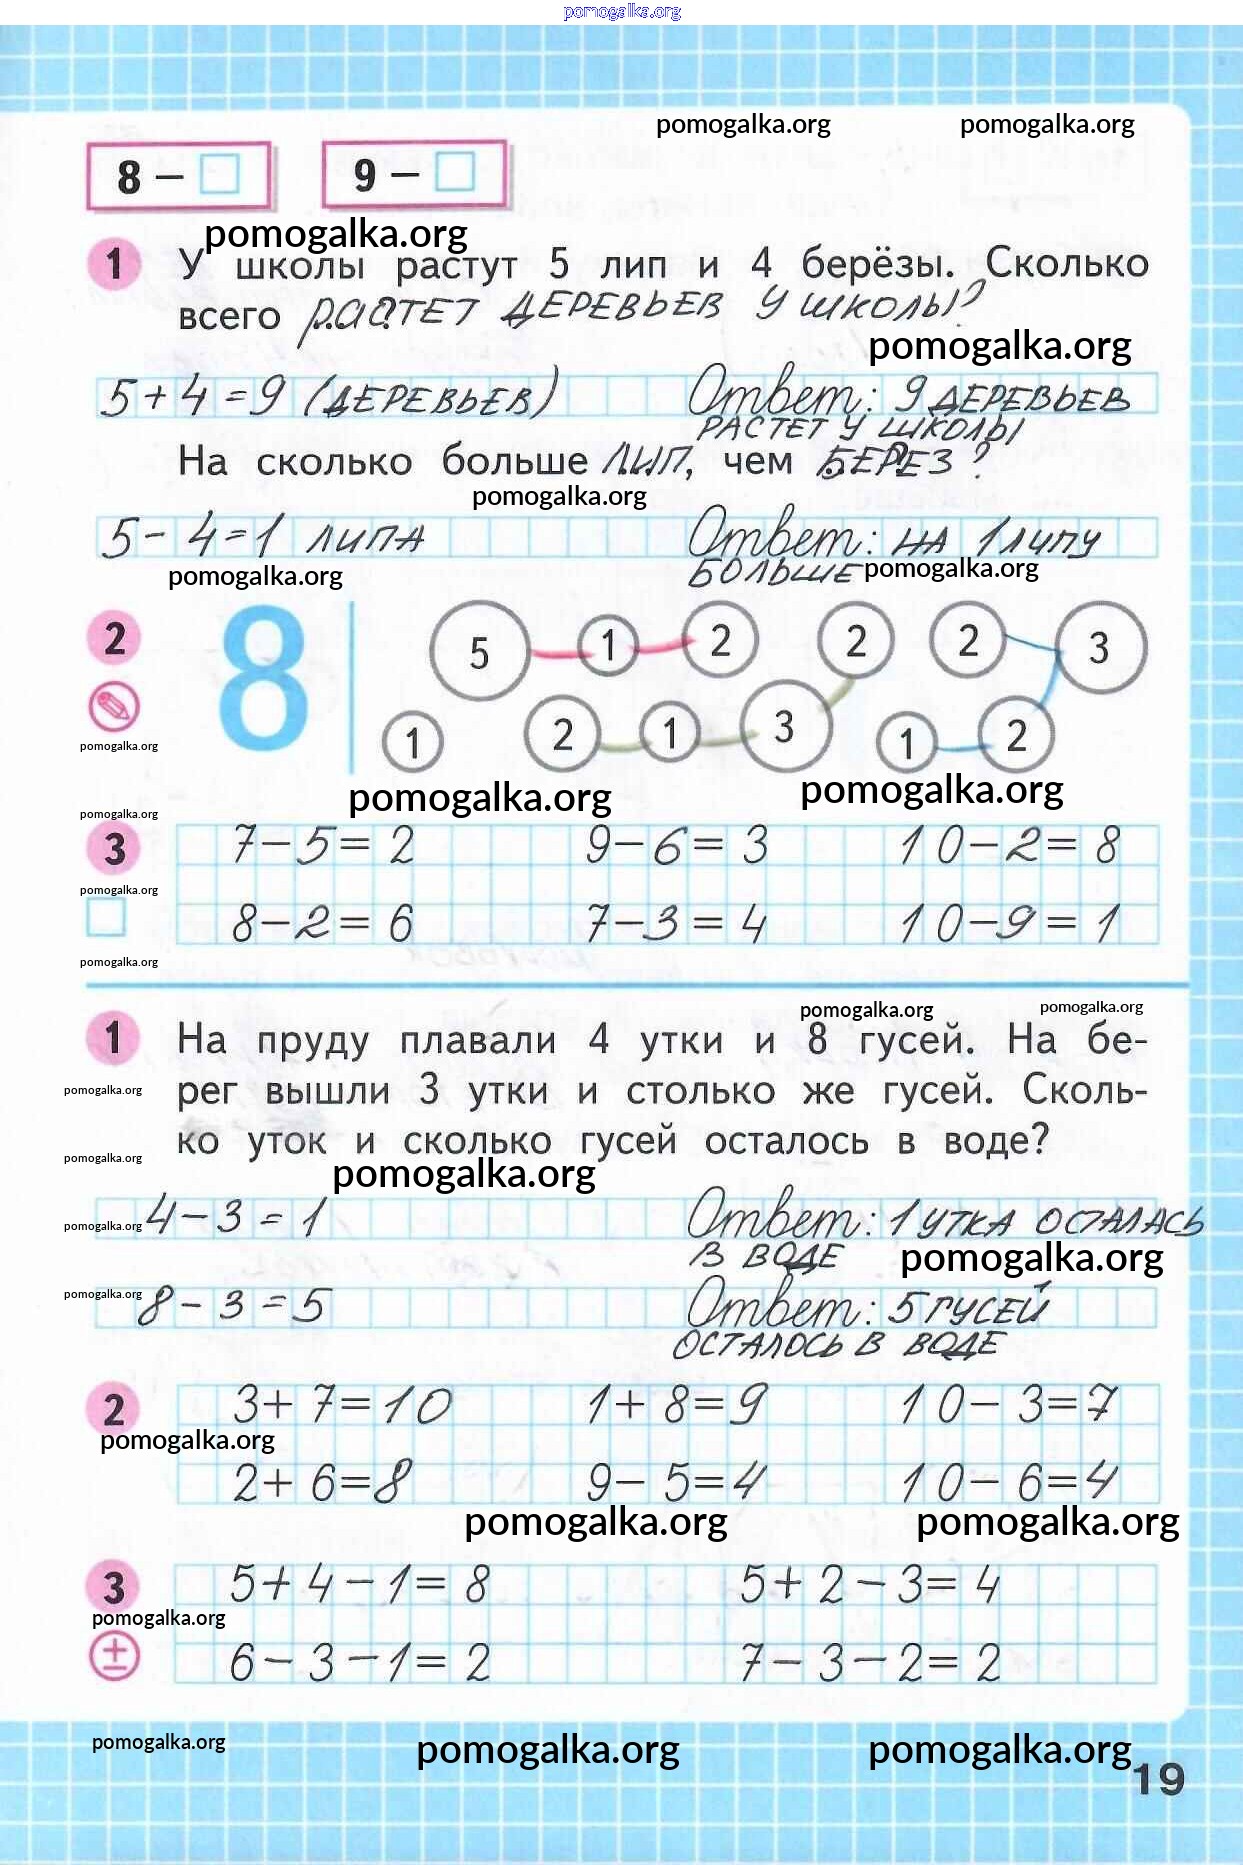 pomogalka.org
pomogalka.org pomogalka.org
8 – 9 –
pomogalka.org
1 У школы растут 5 лип и 4 берёзы. Сколько
всего РАСТЕТ ДЕРЕВЬЕВ У ШКОЛЫ?
pomogalka.org
5+4=9 (ДЕРЕВЬЕВ) Ответ: 9 ДЕРЕВЬЕВ
РАСТЕТ У ШКОЛЫ
На сколько больше ЛИП, чем БЕРЕЗ?
pomogalka.org
5-4=1 ЛИПА Ответ: НА 1 ЛИПУ
БОЛЬШЕ
pomogalka.org pomogalka.org
2 8 5 1 2 2 2 3
1 2 1 3 1 2
pomogalka.org
pomogalka.org pomogalka.org
pomogalka.org
3 7-5=2 9-6=3 10-2=8
pomogalka.org
8-2=6 7-3=4 10-9=1
pomogalka.org
pomogalka.org pomogalka.org
1 На пруду плавали 4 утки и 8 гусей. На бе-
pomogalka.org
рег вышли 3 утки и столько же гусей. Сколь-
ко уток и сколько гусей осталось в воде?
pomogalka.org
pomogalka.org
4-3=1 Ответ: 1 УТКА ОСТАЛАСЬ
pomogalka.org
В ВОДЕ
pomogalka.org
pomogalka.org
8-3=5 Ответ: 5 ГУСЕЙ
ОСТАЛОСЬ В ВОДЕ
2 3+7=10 1+8=9 10-3=7
pomogalka.org
2+6=8 9-5=4 10-6=4
pomogalka.org pomogalka.org
3 5+4-1=8 5+2-3=4
pomogalka.org
6-3-1=2 7-3-2=2
pomogalka.org pomogalka.org pomogalka.org
19